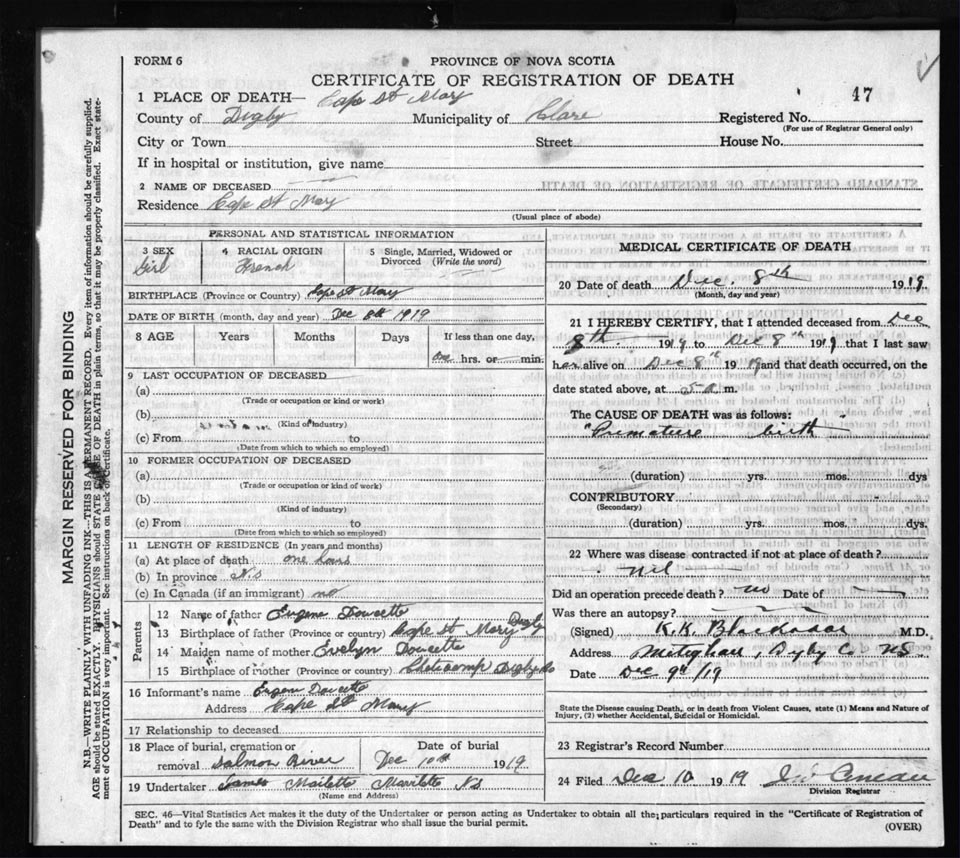 FORM 6
PROVINCE OF NOVA SCOTIA
CERTIFICATE OF REGISTRATION OF DEATH
1 PLACE OF DEATH— Cape St Mary
47
County of Digby Municipality of Clare Registered No.
(For use of Registrar General only)
City or Town Street House No.
If in hospital or institution, give name
2 NAME OF DECEASED
Residence Cape St Mary
(Usual place of abode)
PERSONAL AND STATISTICAL INFORMATION
3 SEX Girl
4 RACIAL ORIGIN French
5 Single, Married, Widowed or Divorced (Write the word)
BIRTHPLACE (Province or Country) Cape St Mary
DATE OF BIRTH (month, day and year) Dec 8th 1919
8 AGE Years Months Days If less than one day,
one hrs. or min.
9 LAST OCCUPATION OF DECEASED
(a)
(Trade or occupation or kind or work)
(b)
(Kind of industry)
(c) From to
(Date from which to which so employed)
10 FORMER OCCUPATION OF DECEASED
(a)
(Trade or occupation or kind of work)
(b)
(Kind of industry)
(c) From to
(Date from which to which so employed)
11 LENGTH OF RESIDENCE (In years and months)
(a) At place of death one hour
(b) In province N.S
(c) In Canada (if an immigrant) no
Parents
12 Name of father Eugene Doucette
13 Birthplace of father (Province or country) Cape St Mary Digby
14 Maiden name of mother Evelyn Doucette
15 Birthplace of mother (Province or Country) Digby Co
16 Informant's name Doucette
Address Cape St Mary
17 Relationship to deceased
18 Place of burial, cremation or removal Salmon River
Date of burial Dec 10th 1919
19 Undertaker James Mailette NS
(Name and Address)
MEDICAL CERTIFICATE OF DEATH
20 Date of death Dec. 8th 1919
(Month, day and year)
21 I HEREBY CERTIFY, that I attended deceased from Dec
8th 1919 to Dec 8th 1919 that I last saw
her alive on Dec 8th 1919 and that death occurred, on the
date stated above, at 5 a m.
The CAUSE OF DEATH was as follows:
"Premature birth
(duration) yrs. mos. dys
CONTRIBUTORY
(Secondary)
(duration) yrs. mos. dys.
22 Where was disease contracted if not at place of death?
nil
Did an operation precede death? no Date of
Was there an autopsy?
(Signed) K.K. Blackadar M.D.
Address Meteghan, Digby Co NS
Date Dec 9th/19
State the Disease causing Death, or in death from Violent Causes, state (1) Means and Nature of
Injury, (2) whether Accidental, Suicidal or Homicidal.
23 Registrar's Record Number
24 Filed Dec 10 1919
Division Registrar
SEC. 46—Vital Statistics Act makes it the duty of the Undertaker or person acting as Undertaker to obtain all the particulars required in the "Certificate of Registration of
Death" and to fyle the same with the Division Registrar who shall issue the burial permit.
(OVER)
MARGIN RESERVED FOR BINDING
N.B.—WRITE PLAINLY WITH UNFADING INK—THIS IS A PERMANENT RECORD. Every item of information should be carefully supplied.
AGE should be stated EXACTLY. PHYSICIANS should STATE CAUSE OF DEATH in plain terms, so that it may be properly classified. Exact state-
ment of OCCUPATION is very important. See instructions on back of Certificate.